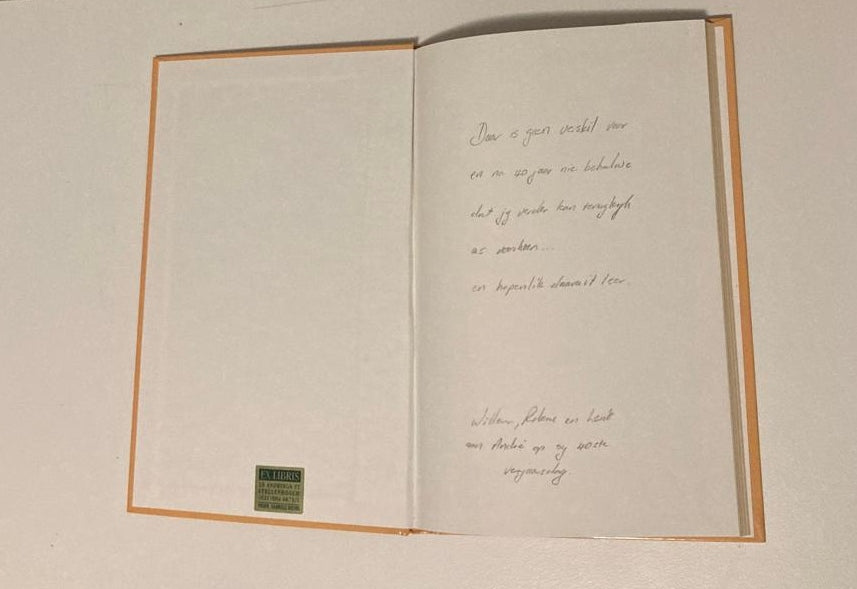 Daar is geen verskil voor
en na 40 jaar nie behalwe
dat jy verder kan terugkyk
as voorheen...
en hopenlik daaruit leer.
Willem, en
aan André op sy 40ste
verjaarsdag.
EX LIBRIS